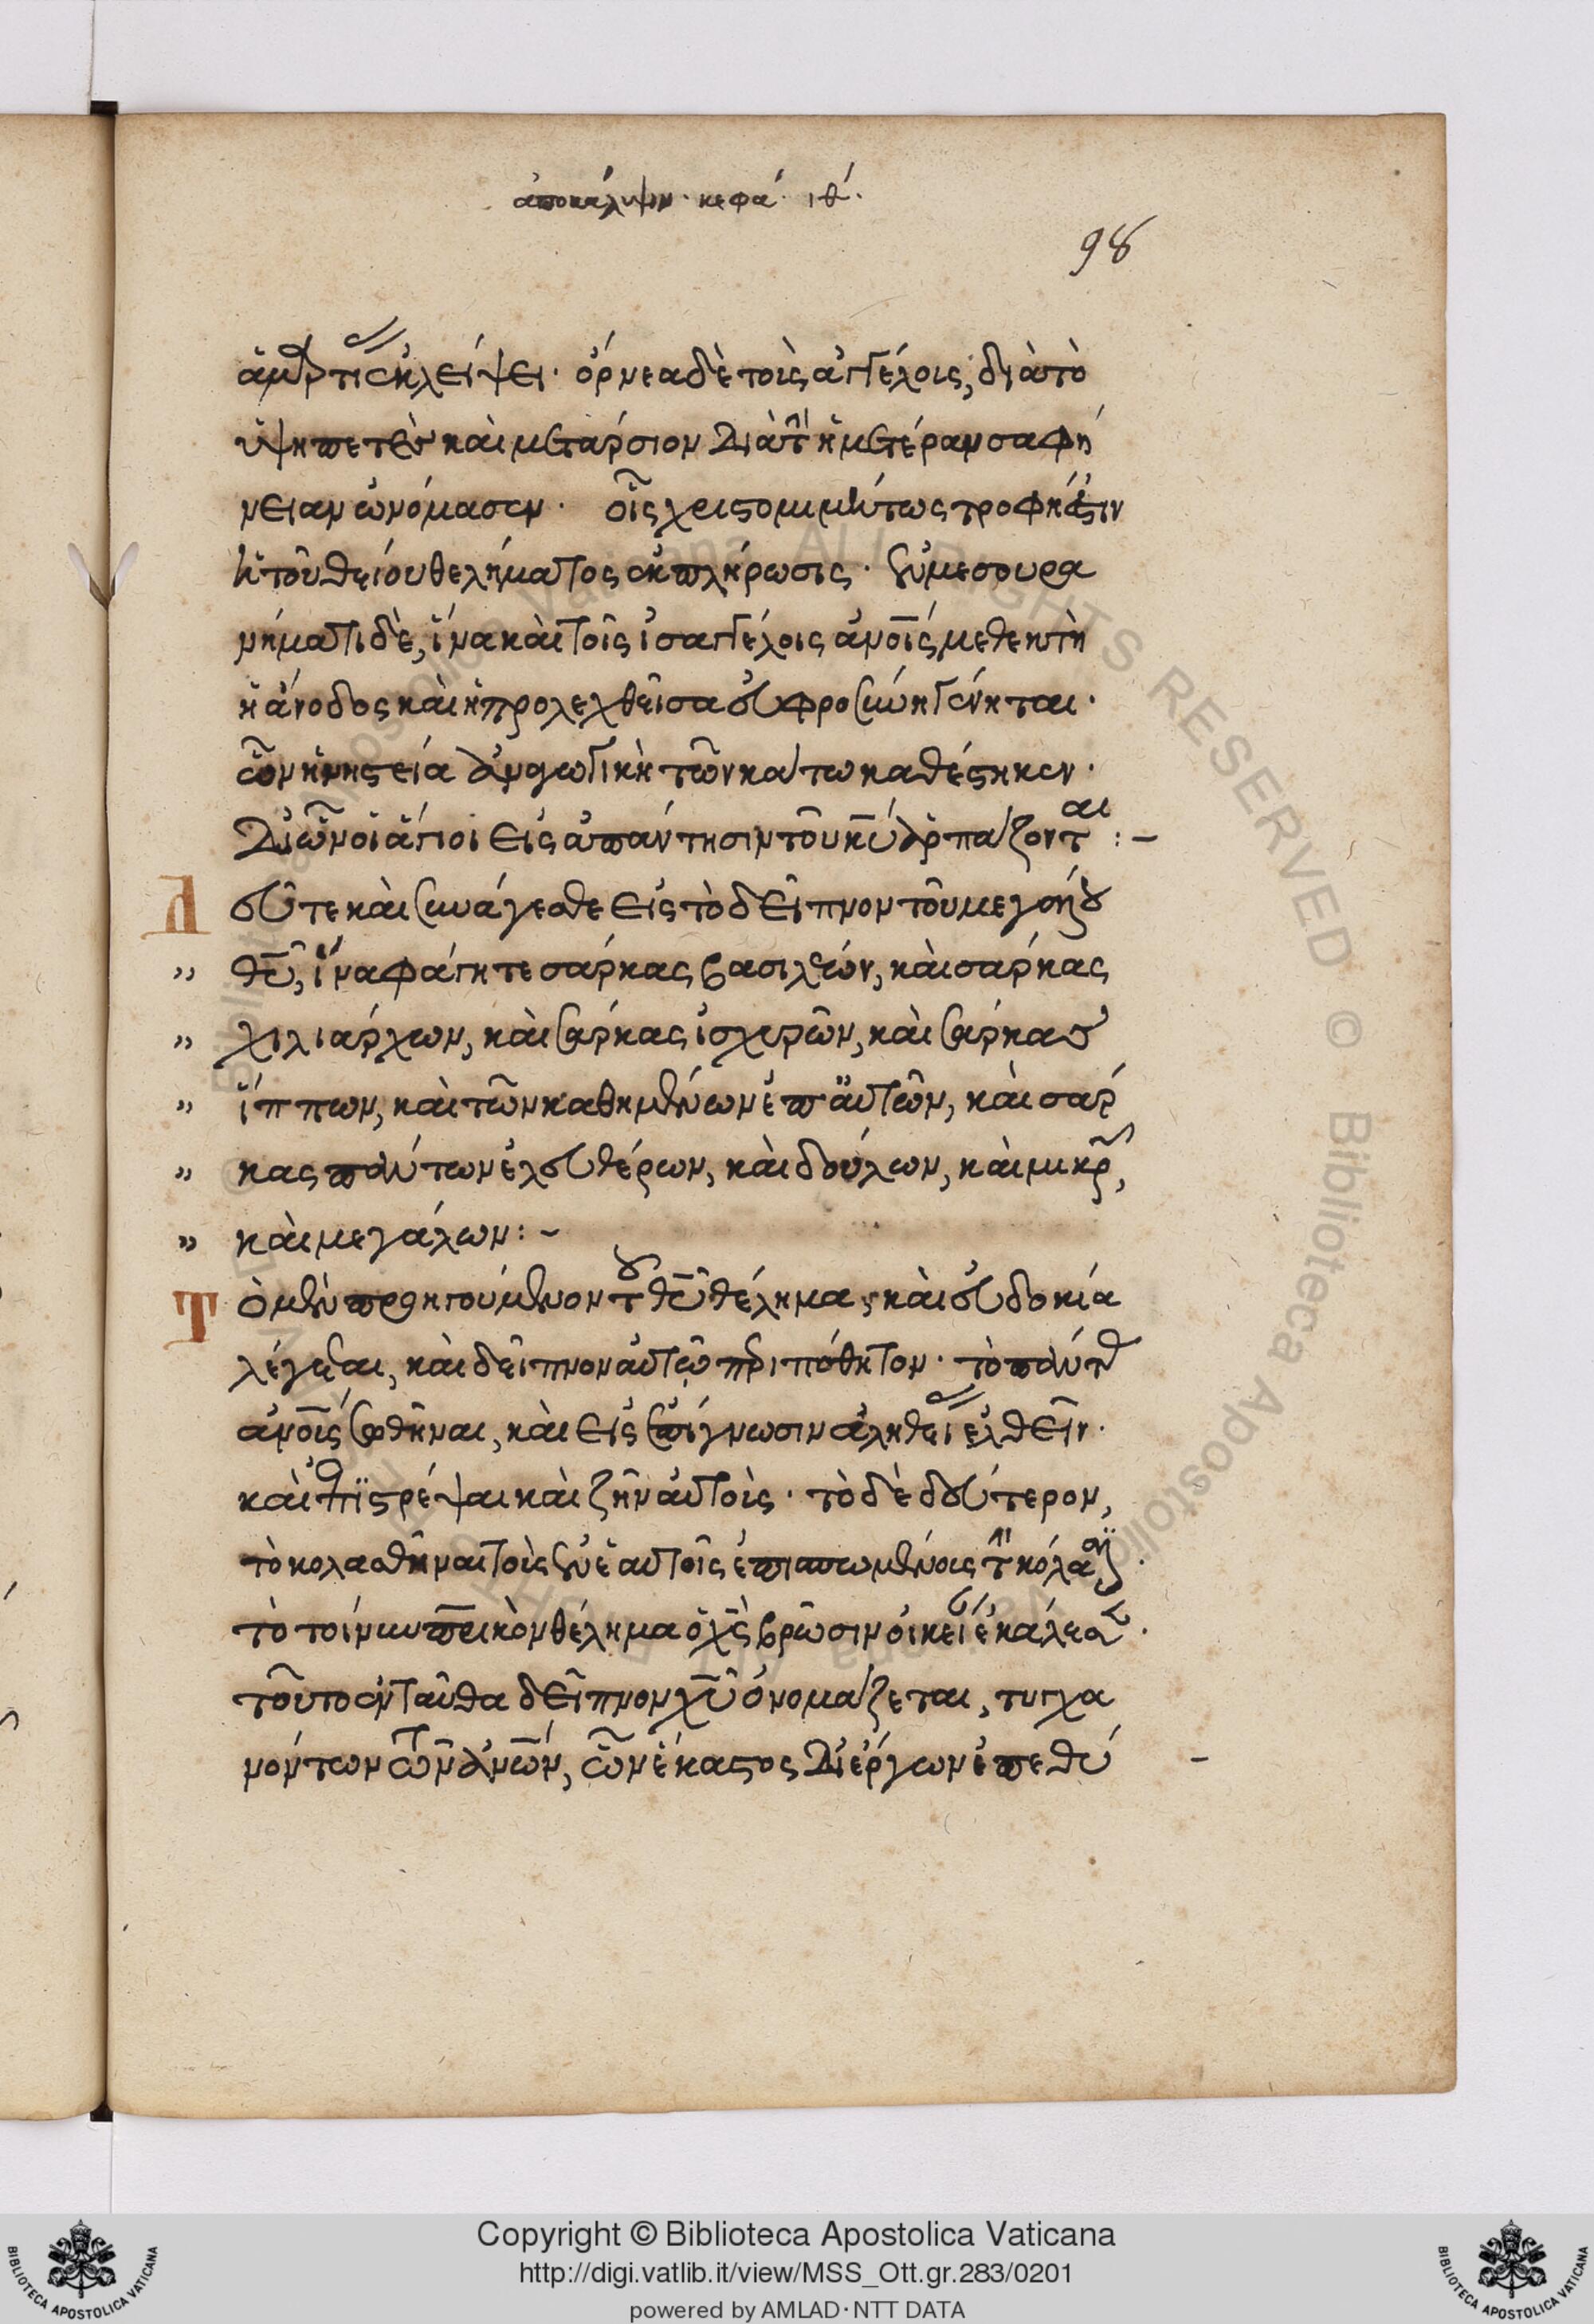 ἀποκάλυψιν· κεφά· ιθ´.
98
ἁμαρτίας ἐκλείψει· ὄρνεα δὲ τοὺς ἀγγέλους, διὰ τὸ
ὑψηπετὲς καὶ μετάρσιον διὰ τὴν ἡμετέραν σαφή
νειαν ὠνόμασεν· οἷς χριστομιμήτως τροφή ἐστιν
ἡ τοῦ θείου θελήματος ἐκπλήρωσις· ἐν μεσουρα
νήματι δὲ, ἵνα καὶ τοῖς ἰσαγγέλοις ἀνοις μεθεκτὴ
ἡ ἄνοδος καὶ ἡ προλεχθεῖσα εὐφροσύνη γένηται·
ὧν ἡ νηστεία ἀναγωγικὴ τῶν κάτω καθέστηκεν·
δι' ὧν οἱ ἅγιοι εἰς ἀπάντησιν τοῦ κυ ἁρπάζονται :–
Δεῦτε καὶ συνάγεσθε εἰς τὸ δεῖπνον τοῦ μεγάλου
" θυ, ἵνα φάγητε σάρκας βασιλέων, καὶ σάρκας
" χιλιάρχων, καὶ σάρκας ἰσχυρῶν, καὶ σάρκας
" ἵππων, καὶ τῶν καθημένων ἐπ' αὐτῶν, καὶ σάρ
" κας πάντων ἐλευθέρων, καὶ δούλων, καὶ μικρῶν,
" καὶ μεγάλων :–
Τὸ μὲν προηγούμενον τοῦ θυ θέλημα, καὶ εὐδοκία
λέγεται, καὶ δεῖπνον αὐτῷ περιπόθητον· τὸ πάντας
ἀνους σωθῆναι, καὶ εἰς ἐπίγνωσιν ἀληθείας ἐλθεῖν·
καὶ ἐπιστρέψαι καὶ ζῆν αὐτούς· τὸ δὲ δεύτερον,
τὸ κολασθῆναι τοὺς ἐν ἑαυτοῖς ἐπισπωμένους τὴν κόλασιν.
τὸ τοίνυν πρικὸν θέλημα ὁ χς βρῶσιν οἰκείαν ἐκάλεσεν.
τοῦτο ἐνταῦθα δεῖπνον χυ ὀνομάζεται, τυγχα
νόντων τῶν ἀνων, ὧν ἕκαστος δι' ἔργων ἐπεθύ –
Copyright © Biblioteca Apostolica Vaticana
http://digi.vatlib.it/view/MSS_Ott.gr.283/0201
powered by AMLAD·NTT DATA